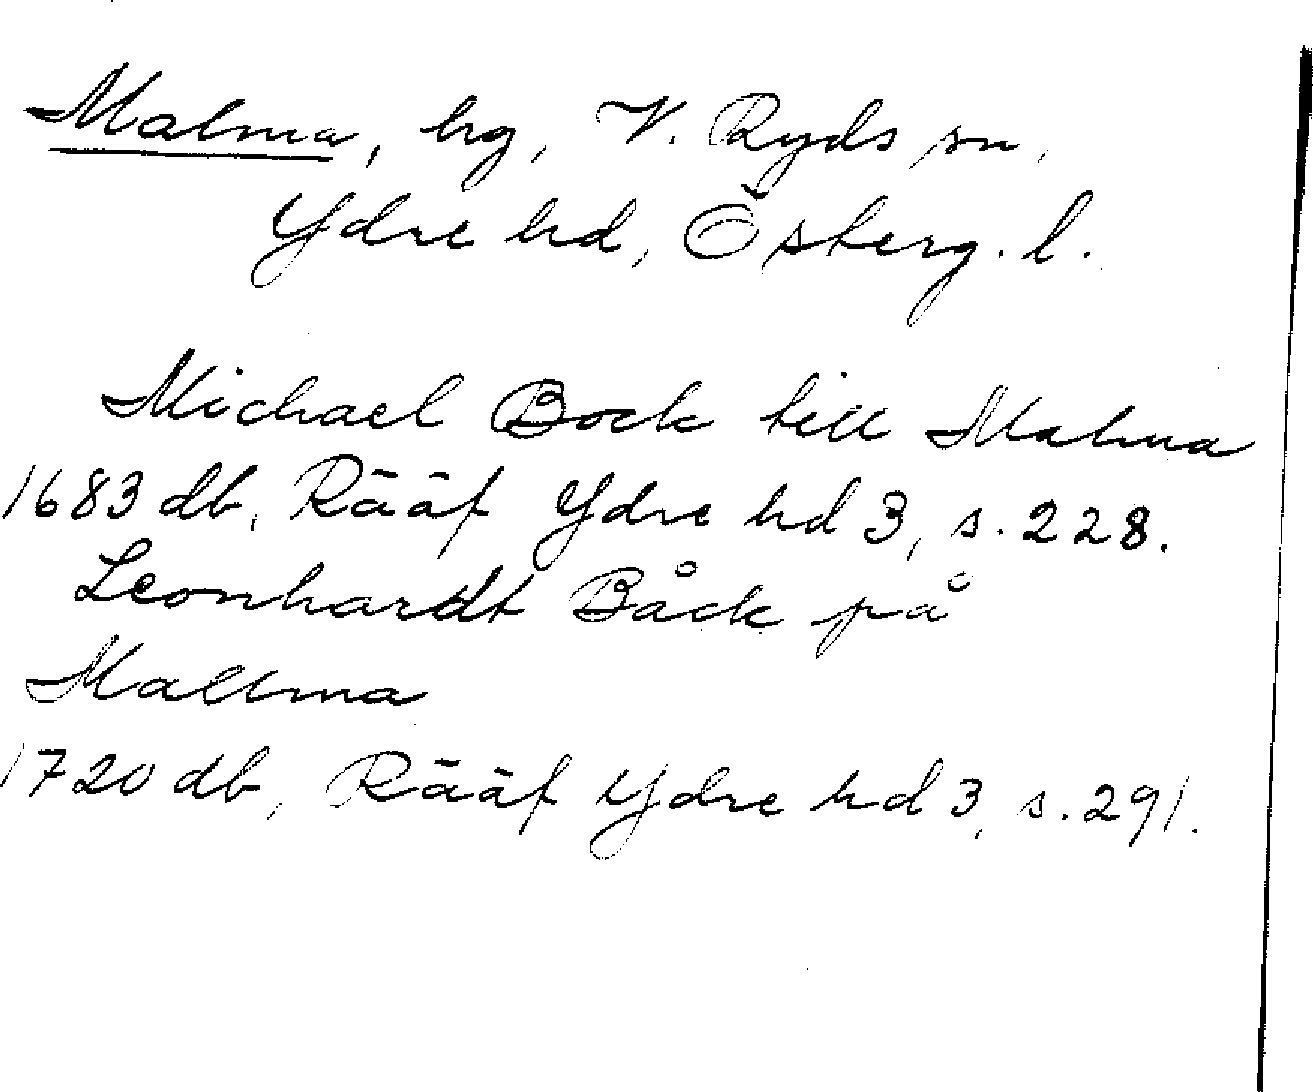 Malma, hg, V. Ryds sn,
Ydre hd, Österg. l.
Michael Bock till Malma
1683 db, Rääf Ydre hd 3, s. 228.
Leonhardt Båck på
Mallma
1720 db, Rääf Ydre hd 3, s. 291.